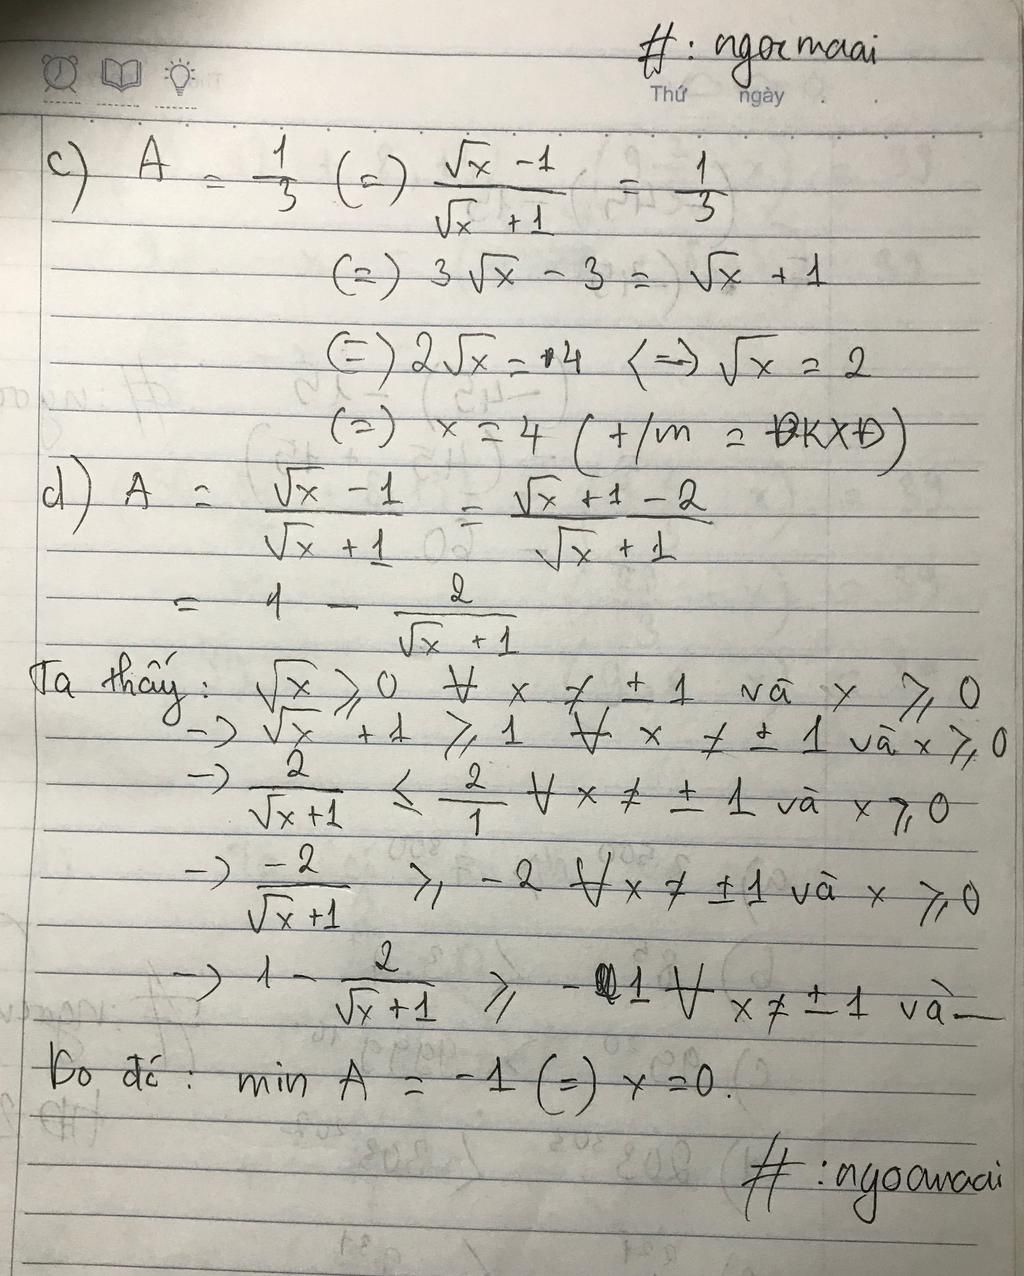 #: ngocmaai
Thứ ngày
c) A = 1/3 (=) (√x - 1)/(√x + 1) = 1/3
(=) 3√x - 3 = √x + 1
(=) 2√x = 4 (=) √x = 2
(=) x = 4 (t/m = ĐKXĐ)
d) A = (√x - 1)/(√x + 1) = (√x + 1 - 2)/(√x + 1)
= 1 - 2/(√x + 1)
Ta thấy: √x ⩾ 0 ∀ x ≠ ± 1 và x ⩾ 0
-> √x + 1 ⩾ 1 ∀ x ≠ ± 1 và x ⩾ 0
-> 2/(√x + 1) ≤ 2/1 ∀ x ≠ ± 1 và x ⩾ 0
-> -2/(√x + 1) ⩾ -2 ∀ x ≠ ± 1 và x ⩾ 0
-> 1 - 2/(√x + 1) ⩾ -1 ∀ x ≠ ± 1 và —
Do đó: min A = -1 (=) x = 0.
#: ngocmaai